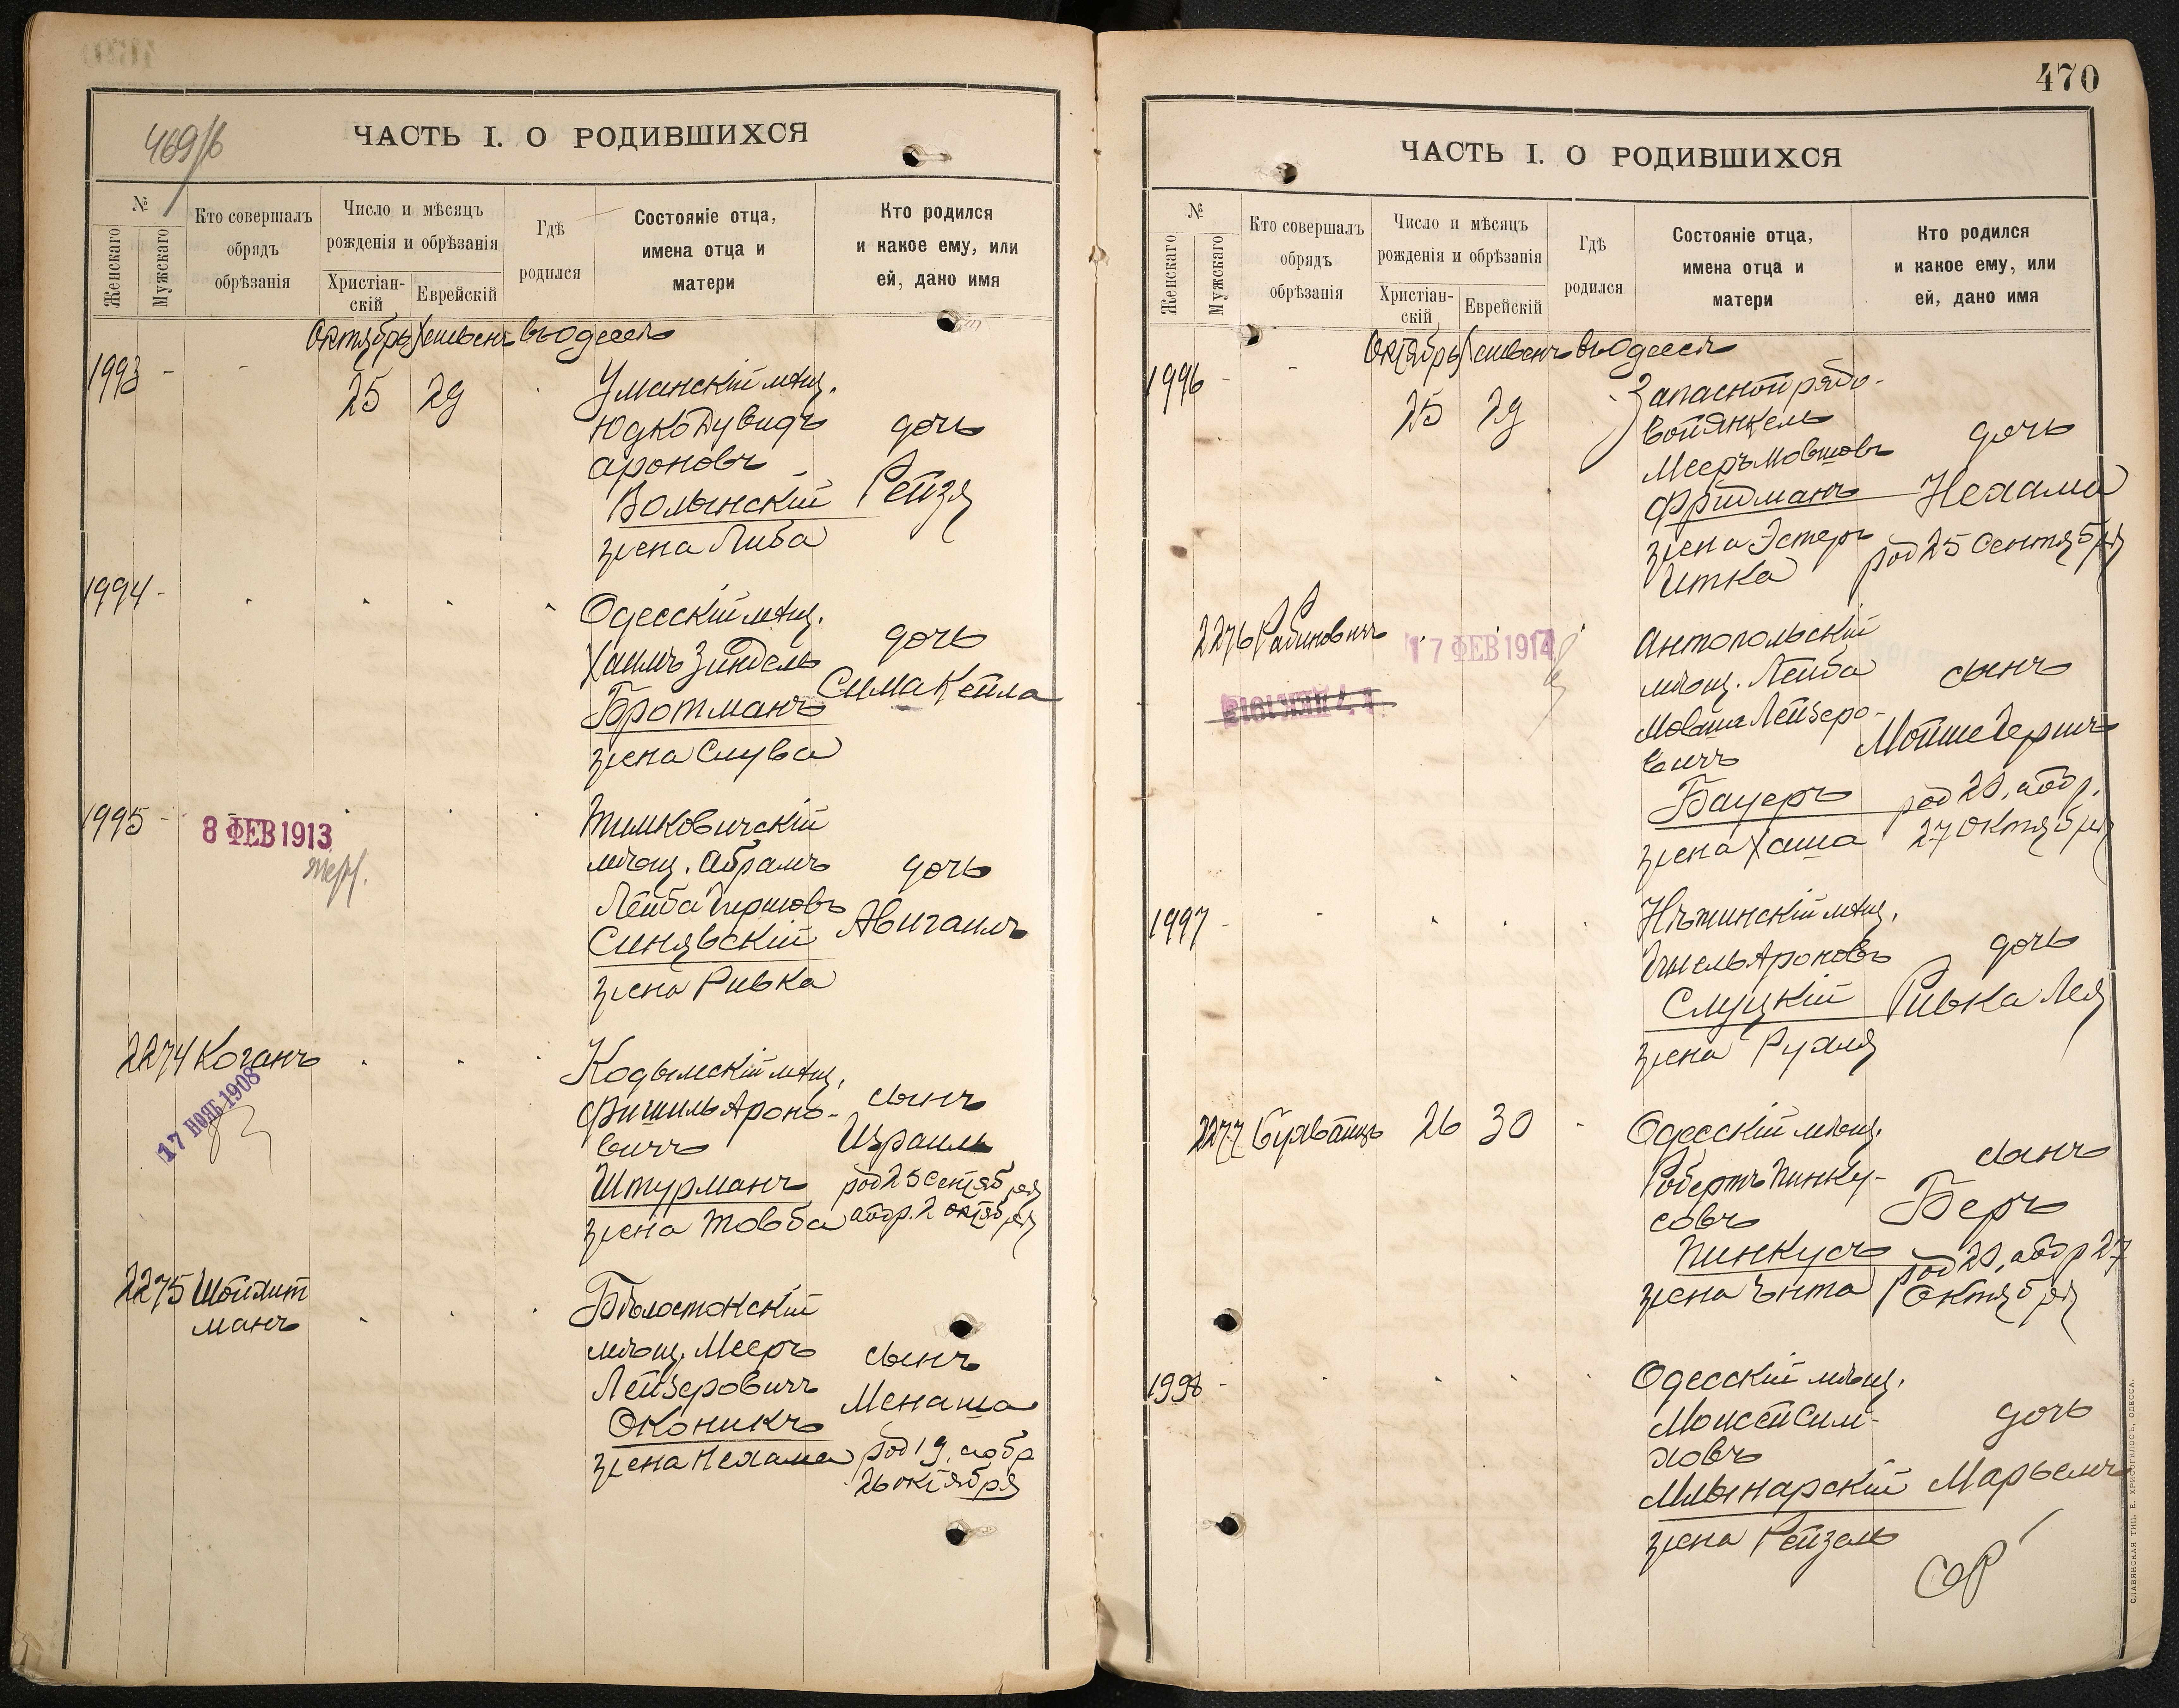 469/б
ЧАСТЬ I. О РОДИВШИХСЯ
№
Женскаго
Мужскаго
Кто совершалъ
обрядъ
обрѣзанія
Число и мѣсяцъ
рожденія и обрѣзанія
Христіан-
скій
Еврейскій
Гдѣ
родился
Состояніе отца,
имена отца и
матери
Кто родился
и какое ему, или
ей, дано имя
Октябрь Хешвенъ въ Одессѣ
1993 - - 25 29
Уманскій мѣщ.
Юдко Дувидъ
Ароновъ
Волынскій
жена Либа
дочь
Рейзя
1994 -
Одесскій мѣщ.
Хаимъ Зиндель
Бротманъ
жена Слува
дочь
Сима Кейла
1995 -
8 ФЕВ 1913
Тимковичскій
мѣщ. Абрамъ
Лейба Гершовъ
Синявскій
жена Ривка
дочь
Авигаилъ
2274 Коганъ
17 НОЯБ 1908
Кодымскій мѣщ.
Фишиль Ароно-
вичъ
Штурманъ
жена Товба
сынъ
Израиль
род 25 Сентября
абр. 2 октября
2275 Шойхит
манъ
Бѣлостокскій
мѣщ. Мееръ
Лейзеровичъ
Оконикъ
жена Нехама
сынъ
Менаша
род 19, абр
26 октября
470
ЧАСТЬ I. О РОДИВШИХСЯ
№
Женскаго
Мужскаго
Кто совершалъ
обрядъ
обрѣзанія
Число и мѣсяцъ
рожденія и обрѣзанія
Христіан-
скій
Еврейскій
Гдѣ
родился
Состояніе отца,
имена отца и
матери
Кто родился
и какое ему, или
ей, дано имя
Октябрь Хешвенъ въ Одессѣ
1996 - - 25 29
Запасной рядо-
вой Янкель
Мееръ Мовшовъ
Фридманъ
жена Эстеръ
Итка
дочь
Нехама
род 25 Сентября
2276 Рабиновичъ
17 ФЕВ 1914
Антопольскій
мѣщ. Лейба
Мовша Лейзеро-
вичъ
Бауеръ
жена Хаша
сынъ
Мойше Гершъ
род 20, абр.
27 октября
1997 -
Нѣжинскій мѣщ.
Ароновъ
Слуцкій
жена Рухля
дочь
Ривка Лея
2277 26 30 -
Одесскій мѣщ.
Робертъ Пинку-
совъ
Пинкусъ
жена Ента
сынъ
Беръ
род 20, абр 27
Октября
1998 -
Одесскій мѣщ.
Моисей Сим-
ховъ
Млынарскій
жена Рейзель
дочь
Марьемъ
СЛАВЯНСКАЯ ТИП. Е. ХРИСОГЕЛОСЪ, ОДЕССА.